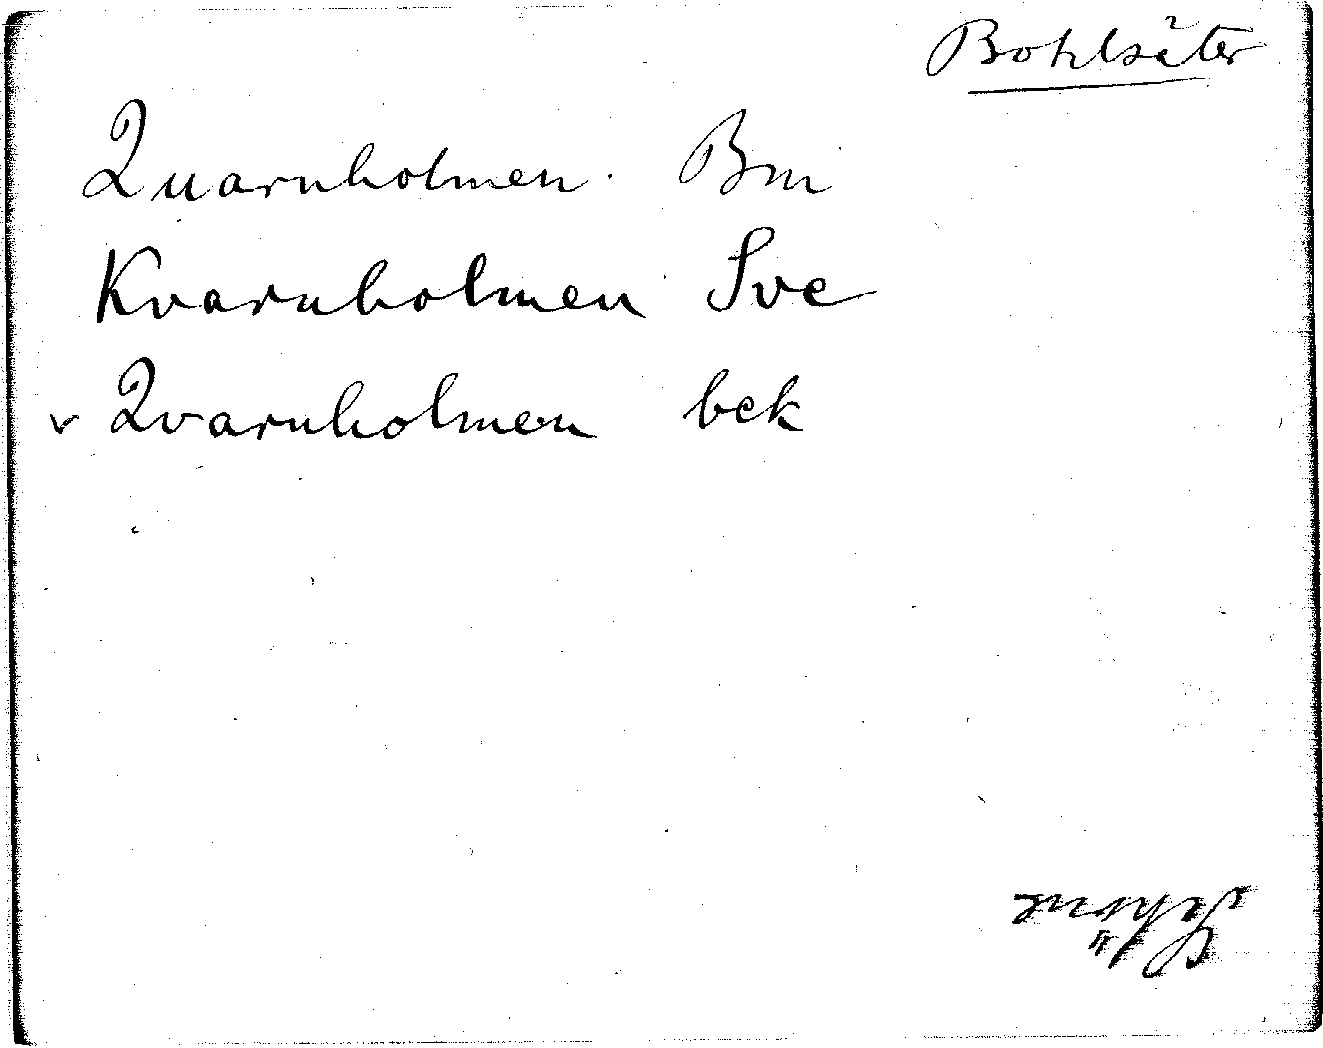 Bohlsäter
Quarnholmen. Bm
Kvarnholmen Sve
v Qvarnholmen bek
Schöne